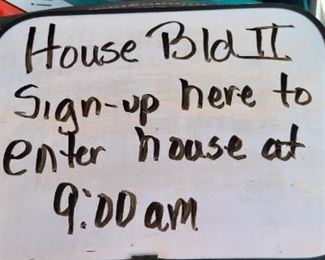 House Bld II
Sign-up here to
enter house at
9:00 am